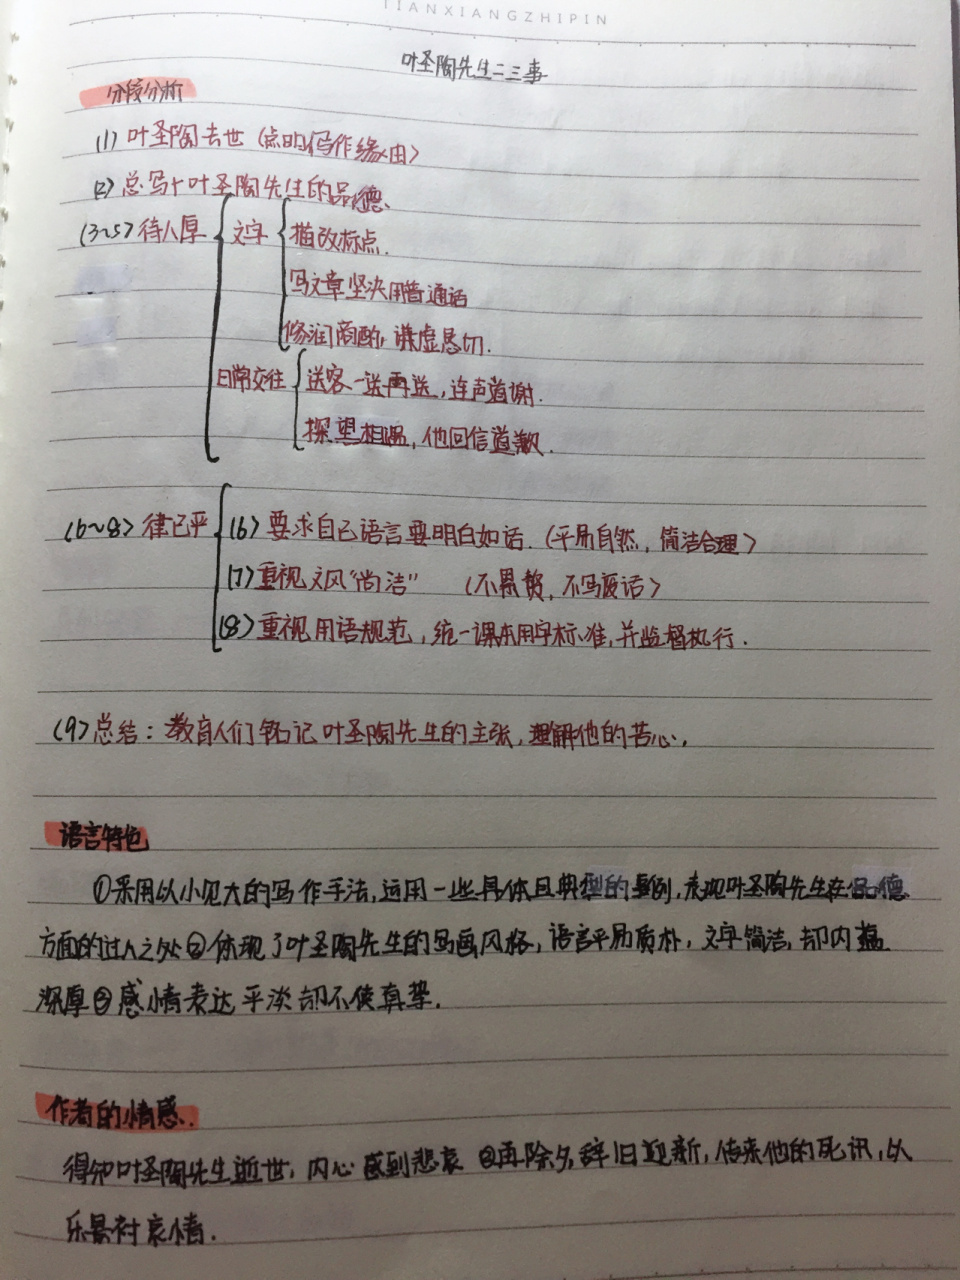 TIANXIANGZHIPIN
叶圣陶先生二三事
分段分析
(1) 叶圣陶去世 (点明写作缘由)
(2) 总写叶圣陶先生的品德
(3~5) 待人厚 文字 描改标点.
写文章坚决用普通话
修润商酌, 谦虚恳切.
日常交往 送客一送再送, 连声道谢.
探望相遇, 他回信道歉.
(6~8) 律己严 (6) 要求自己语言要明白如话. (平易自然, 简洁合理)
(7) 重视文风“尚洁” (不累赘, 不写废话)
(8) 重视用语规范, 统一课本用字标准, 并监督执行.
(9) 总结: 教育人们铭记叶圣陶先生的主张, 理解他的苦心.
语言特色
①采用以小见大的写作手法, 运用一些具体且典型的事例, 表现叶圣陶先生在品德
方面的过人之处②体现了叶圣陶先生的写画风格, 语言平易质朴, 文字简洁, 却内蕴
深厚③感情表达平淡却不使真挚.
作者的情感.
得知叶圣陶先生逝世, 内心感到悲哀 ②再除夕辞旧迎新, 传来他的死讯, 以
乐景衬哀情.